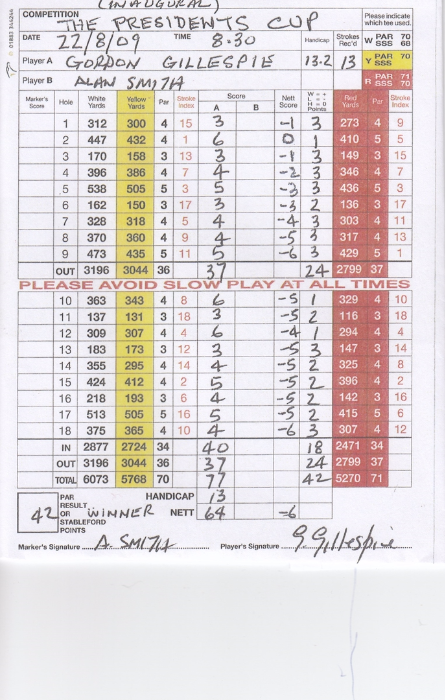 (INAUGURAL)
COMPETITION THE PRESIDENTS CUP
Please indicate which tee used.
DATE 22/8/09 TIME 8.30 Handicap Strokes Rec'd W PAR 70 SSS 68
Player A GORDON GILLESPIE 13.2 13 Y PAR 70 SSS
Player B ALAN SMITH R PAR 71 SSS 70
Marker's Score Hole White Yards Yellow Yards Par Stroke Index Score A B Nett Score W = + L = - H = 0 Points Red Yards Par Stroke Index
1 312 300 4 15 3 -1 3 273 4 9
2 447 432 4 1 6 0 1 410 5 5
3 170 158 3 13 3 -1 3 149 3 15
4 396 386 4 7 4 -2 3 346 4 7
5 538 505 5 3 5 -3 3 436 5 3
6 162 150 3 17 3 -3 2 136 3 17
7 328 318 4 5 4 -4 3 303 4 11
8 370 360 4 9 4 -5 3 317 4 13
9 473 435 5 11 5 -6 3 429 5 1
OUT 3196 3044 36 37 24 2799 37
PLEASE AVOID SLOW PLAY AT ALL TIMES
10 363 343 4 8 6 -5 1 329 4 10
11 137 131 3 18 3 -5 2 116 3 18
12 309 307 4 4 6 -4 1 294 4 4
13 183 173 3 12 3 -5 3 147 3 14
14 355 295 4 14 4 -5 2 325 4 8
15 424 412 4 2 5 -5 2 396 4 2
16 218 193 3 6 4 -5 2 142 3 16
17 513 505 5 16 5 -5 2 415 5 6
18 375 365 4 10 4 -6 3 307 4 12
IN 2877 2724 34 40 18 2471 34
OUT 3196 3044 36 37 24 2799 37
TOTAL 6073 5768 70 77 42 5270 71
HANDICAP 13
42 PAR RESULT OR STABLEFORD POINTS WINNER NETT 64 -6
Marker's Signature A. SMITH Player's Signature G Gillespie